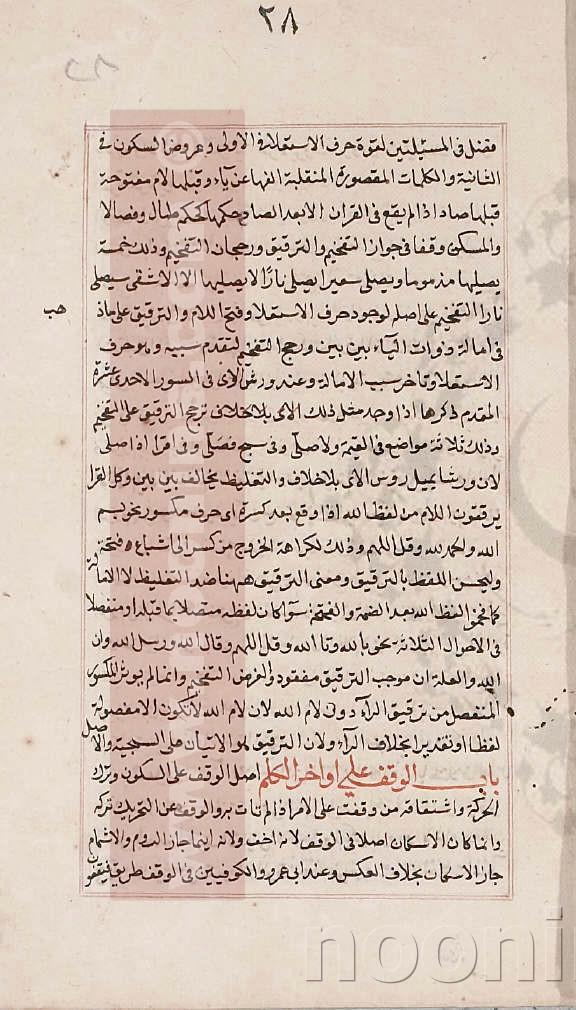 ٢٨
فضل في المسئلتين لقوة حرف الاستعلاء في الاولى وعروض السكون في
الثانية والكلمات المقصورة المنقلبة الفها عن ياء وقبلها لام مفتوحة
قبلها صاد اذ لم يقع في القران الا بعد الصاد حكمها كحكم طال وفصالا
والمسكن وقفا في جواز التفخيم والترقيق ورجحان التفخيم وذلك خمسة
يصليها مذموما ويصلى سعيرا يصلى نارا لا يصليها الا الاشقى سيصلى
نارا التفخيم على اصله لوجود حرف الاستعلا وفتح اللام والترقيق على
في امالة ذوات الياء بين بين ورجح التفخيم لتقدم سببه وهو حرف
الاستعلا وتاخر سبب الامالة وعند ورش الاى في السور الاحدى عشرة
المقدم ذكرها اذا وجد مثل ذلك الاى بلا خلاف ترجح الترقيق على التفخيم
وذلك ثلاثة مواضع في القيمة ولا صلى وفي سبح فصلى وفي اقرا اذا صلى
لان ورشا يميل روس الاى بلا خلاف والتغليظ يخالف بين بين وكل القرا
يرققون اللام من لفظ الله اذا وقع بعد كسرة اى حرف مكسور نحو بسم
الله والحمد لله وقل اللهم وذلك لكراهة الخروج من كسر الى اشباع فتحة
وليحسن اللفظ بالترقيق ومعنى الترقيق ههنا ضد التغليظ لا الامالة
كما فخموا لفظ الله بعد الضمة والفتحة سوا كان لفظه متصلا بما قبله او منفصلا
في الاحوال الثلاثة نحو بالله وتا الله وقل اللهم وقال الله ورسل الله وان
الله والعلة ان موجب الترقيق مفقود والغرض التفخيم وانما لم يوثر المكسور
المنفصل من ترقيق الرآء دون لام الله لان لام الله لا تكون الا مفصولة
لفظا او تقديرا بخلاف الرآء ولان الترقيق هو الاتيان على السجية والاصل
باب الوقف على اواخر الكلم اصل الوقف على السكون وترك
الحركة واشتقاقه من وقفت على الامر اذا لم تات به والوقف عن التحريك تركه
وانما كان الاسكان اصلا في الوقف لانه اخف ولانه اينما جاز الروم والاشمام
جاز الاسكان بخلاف العكس وعند ابي عمرو والكوفيين في الوقف طريق
noonin